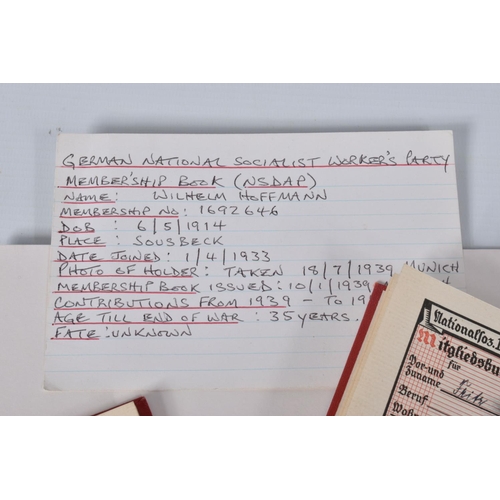 GERMAN NATIONAL SOCIALIST WORKER'S PARTY
MEMBER'SHIP BOOK (NSDAP)
NAME: WILHELM HOFFMANN
MEMBERSHIP NO: 1692646
DOB : 6/5/1914
PLACE : SOUSBECK
DATE JOINED: 1/4/1933
PHOTO OF HOLDER: TAKEN 18/7/1939 MUNICH
MEMBERSHIP BOOK ISSUED: 10/1/1939
CONTRIBUTIONS FROM 1939 - TO 19
AGE TILL END OF WAR : 35 YEARS.
FATE: UNKNOWN
Nationalsoz.
Mitgliedsbu
für
Vor- und
Zuname
Beruf